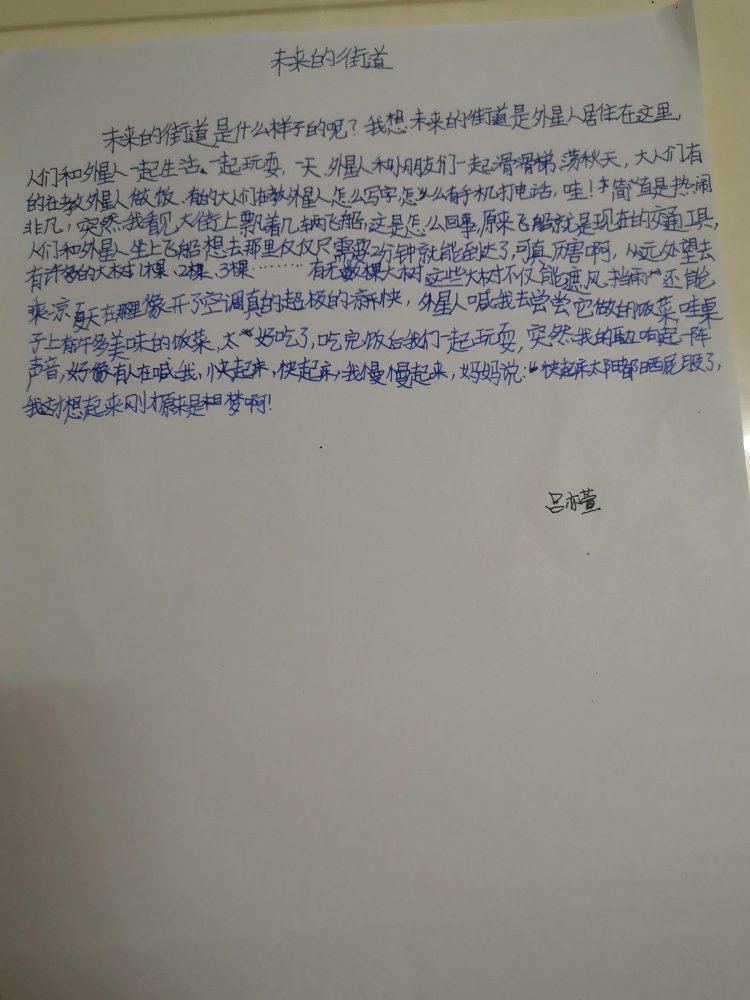 未来的街道
未来的街道是什么样子的呢？我想未来的街道是外星人居住在这里，
人们和外星人一起生活、一起玩耍，一天，外星人和小朋友们一起滑滑梯荡秋天，大人们有
的在教外星人做饭、有的大人们在教外星人怎么写字怎么有手机打电话，哇！简直是热闹
非凡，突然我看见大街上飘着几辆飞船，这是怎么回事，原来飞船就是现在的交通工具，
人们和外星人坐上飞船想去那里仅仅只需要2分钟就能到达了，可真厉害啊，从远处望去
有许多的大树1棵、2棵、3棵………有无数棵大树这些大树不仅能遮风挡雨还能
乘凉夏天在那里像开了空调真的超极的凉快，外星人喊我去尝尝它做的饭菜，哇桌
子上有许多美味的饭菜，太好吃了，吃完饭后我们一起玩耍，突然我的耳边响起一阵
声音，好像有人在喊我，快起来，快起来，我慢慢起来，妈妈说：“快起来太阳都晒屁股了，
我才想起来刚才原来是梦啊！
吕亦萱